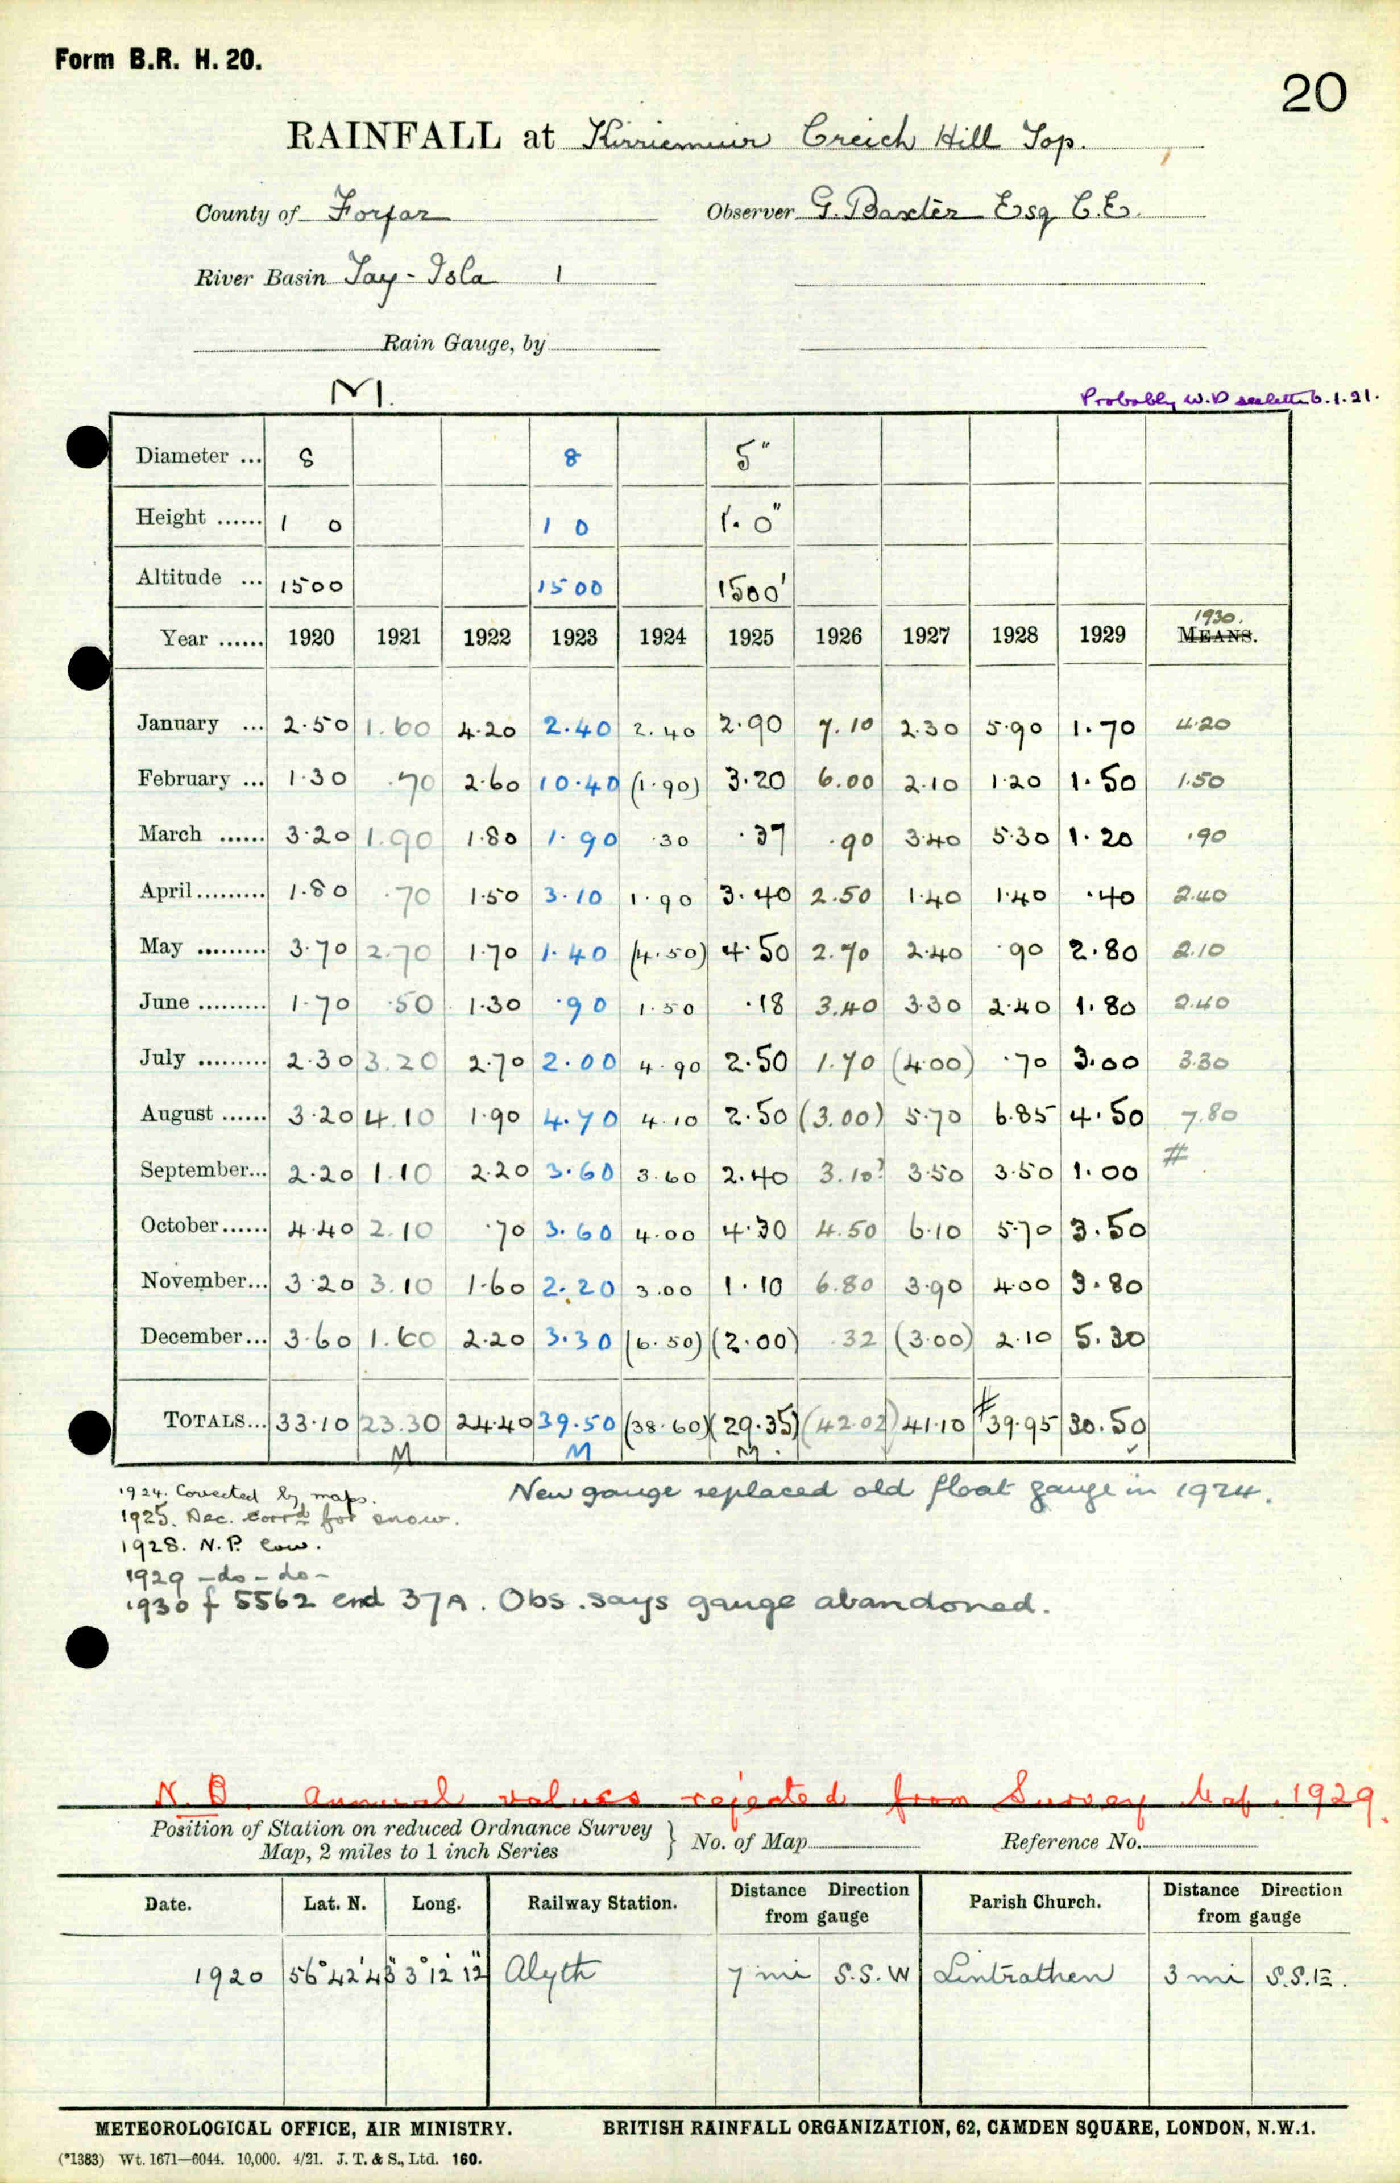 Form B.R. H. 20.
20
RAINFALL at Kirriemuir Creich Hill Top.
County of Forfar Observer G. Baxter Esq C.E.
River Basin Tay - Isla 1
Rain Gauge, by
M.
Probably W.D see letter 6.1.21.
Diameter ... 8 8 5"
Height ...... 1 0 1 0 1'. 0"
Altitude ... 1500 1500 1500'
1930.
Year ...... 1920 1921 1922 1923 1924 1925 1926 1927 1928 1929 MEANS.
January ... 2.50 1.60 4.20 2.40 2.40 2.90 7.10 2.30 5.90 1.70 4.20
February ... 1.30 .70 2.60 10.40 (1.90) 3.20 6.00 2.10 1.20 1.50 1.50
March ...... 3.20 1.90 1.80 1.90 .30 .37 .90 3.40 5.30 1.20 .90
April......... 1.80 .70 1.50 3.10 1.90 3.40 2.50 1.40 1.40 .40 2.40
May ......... 3.70 2.70 1.70 1.40 (4.50) 4.50 2.70 2.40 .90 2.80 2.10
June ......... 1.70 .50 1.30 .90 1.50 .18 3.40 3.30 2.40 1.80 2.40
July ......... 2.30 3.20 2.70 2.00 4.90 2.50 1.70 (4.00) .70 3.00 3.30
August ...... 3.20 4.10 1.90 4.70 4.10 2.50 (3.00) 5.70 6.85 4.50 7.80
September... 2.20 1.10 2.20 3.60 3.60 2.40 3.10? 3.50 3.50 1.00 #
October...... 4.40 2.10 .70 3.60 4.00 4.30 4.50 6.10 5.70 3.50
November... 3.20 3.10 1.60 2.20 3.00 1.10 6.80 3.90 4.00 3.80
December... 3.60 1.60 2.20 3.30 (6.50) (2.00) .32 (3.00) 2.10 5.30
TOTALS... 33.10 23.30 24.40 39.50 (38.60) (29.35) (42.02) 41.10 #39.95 30.50
M M M. ✓
1924. Corrected by maps. New gauge replaced old float gauge in 1924.
1925. Dec. corrd for snow.
1928. N.P. low.
1929 - do - do -
1930 f 5562 end 37A. Obs. says gauge abandoned.
N.B. Annual values rejected from Survey Map. 1929.
Position of Station on reduced Ordnance Survey
Map, 2 miles to 1 inch Series } No. of Map Reference No.
Date. Lat. N. Long. Railway Station. Distance Direction from gauge Parish Church. Distance Direction from gauge
1920 56° 42' 43" 3° 12' 12" Alyth 7 mi S.S.W Lintrathen 3 mi S.S.E.
METEOROLOGICAL OFFICE, AIR MINISTRY. BRITISH RAINFALL ORGANIZATION, 62, CAMDEN SQUARE, LONDON, N.W.1.
(*1383) Wt. 1671—6044. 10,000. 4/21. J. T. & S., Ltd. 160.